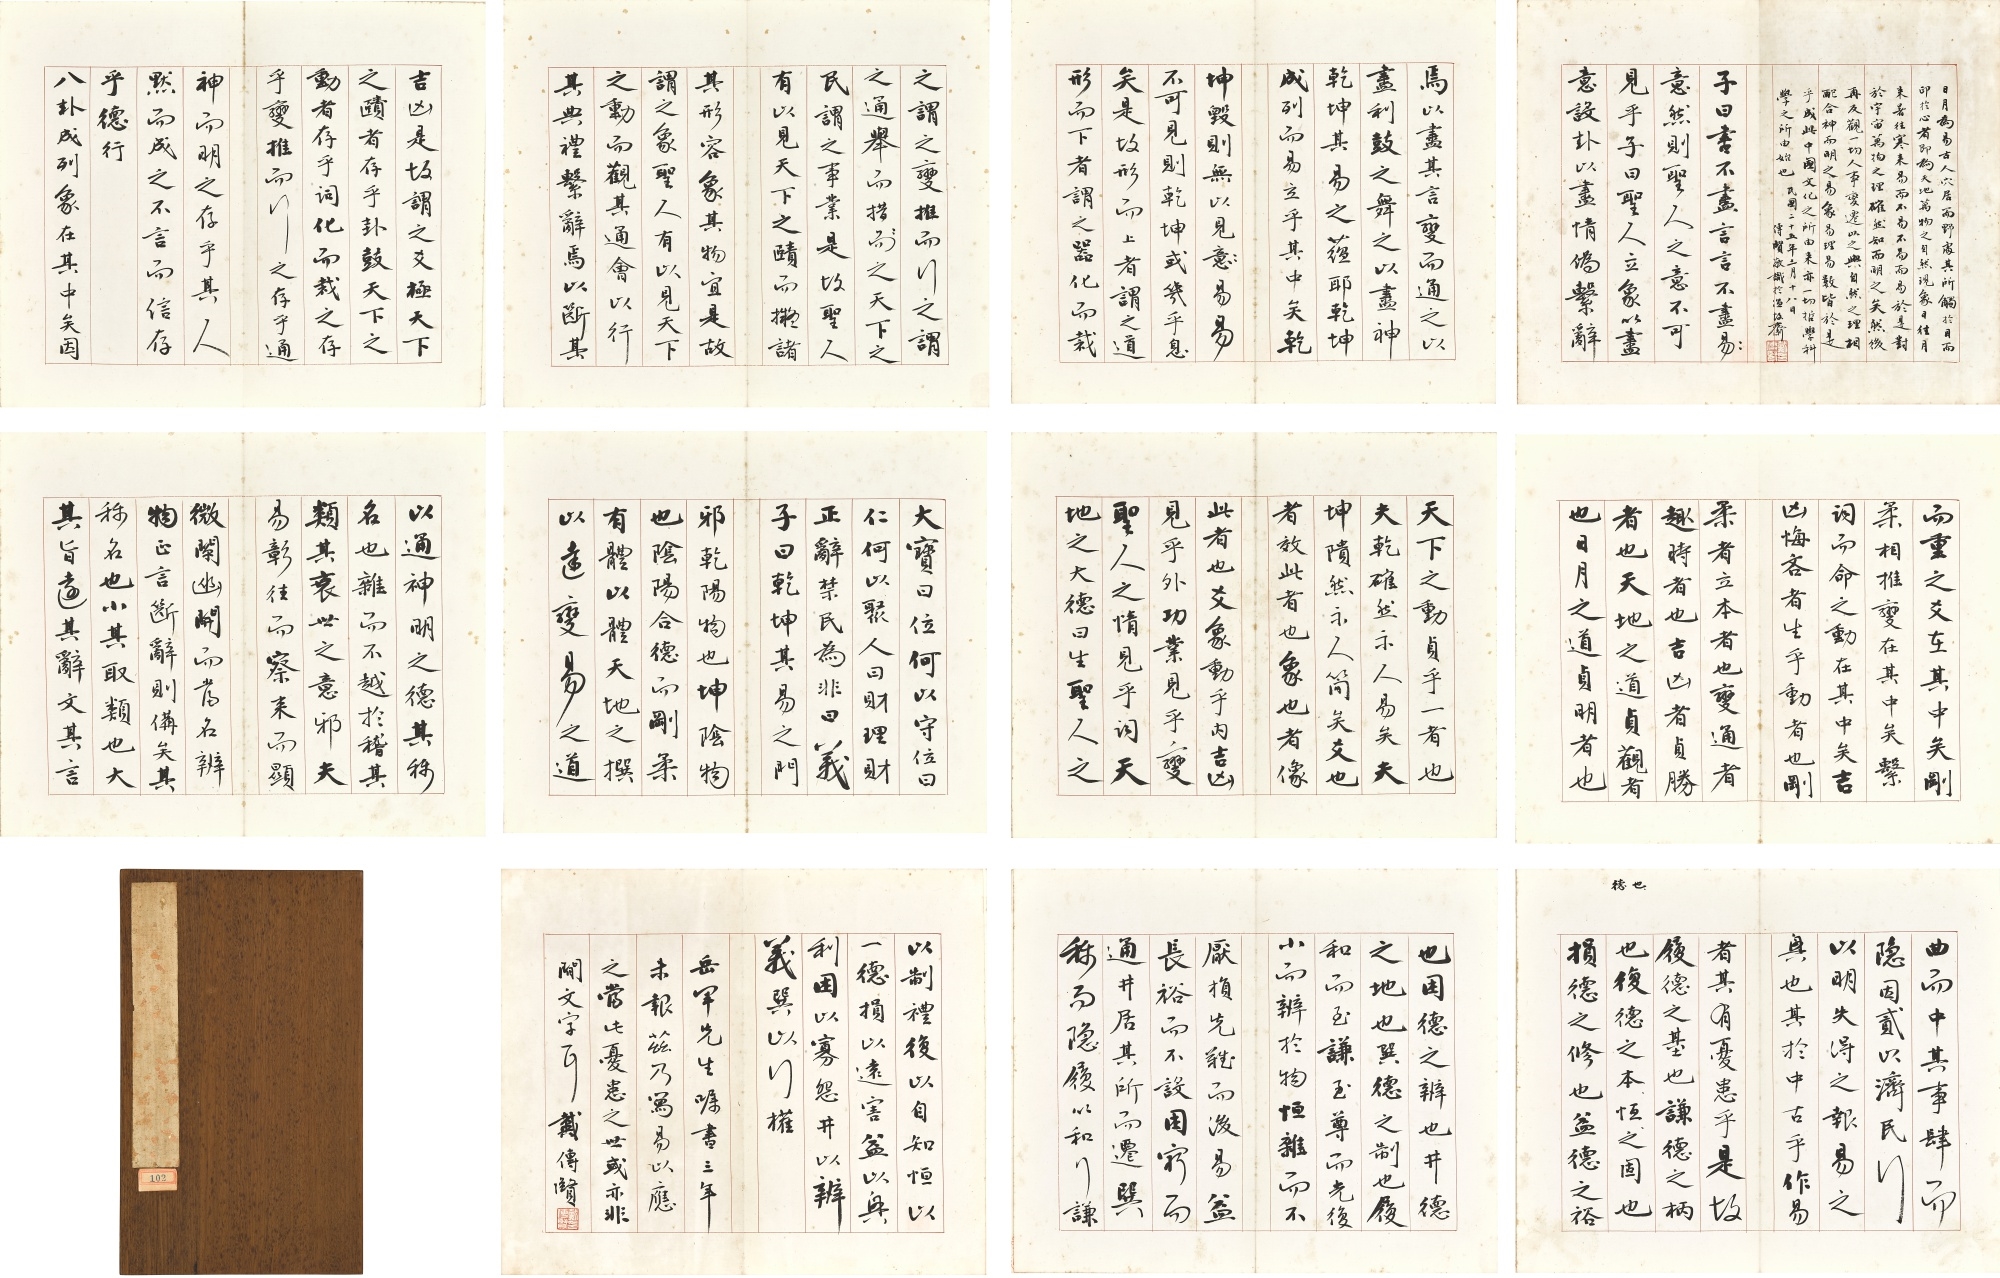 日月為易古人穴居而野處其所觸於目而
印於心者即天地萬物之自然現象日往月
來暑往寒來易而不易不易而易於是對
於宇宙萬物之理確然知而明之矣然後
再反觀一切人事變遷以之與自然之理相
配合神而明之易象易理易數皆於是
乎成此中國文化之所由來亦一切哲學科
學之所由始也 民國二十五年二月十八日
傳賢敬識於
子曰書不盡言言不盡易
意然則聖人之意不可
見乎子曰聖人立象以盡
意設卦以盡情偽繫辭
焉以盡其言變而通之以
盡利鼓之舞之以盡神
乾坤其易之蘊耶乾坤
成列而易立乎其中矣乾
坤毀則無以見意易易
不可見則乾坤或幾乎息
矣是故形而上者謂之道
形而下者謂之器化而裁
之謂之變推而行之謂
之通舉而措而之天下之
民謂之事業是故聖人
有以見天下之賾而擬諸
其形容象其物宜是故
謂之象聖人有以見天下
之動而觀其通會以行
其典禮繫辭焉以斷其
吉凶是故謂之爻極天下
之賾者存乎卦鼓天下之
動者存乎詞化而裁之存
乎變推而行之存乎通
神而明之存乎其人
默而成之不言而信存
乎德行
八卦成列象在其中矣因
而重之爻在其中矣剛
柔相推變在其中矣繫
詞而命之動在其中矣吉
凶悔吝者生乎動者也剛
柔者立本者也變通者
趣時者也吉凶者貞勝
者也天地之道貞觀者
也日月之道貞明者也
天下之動貞乎一者也
夫乾確然示人易矣夫
坤隤然示人簡矣爻也
者效此者也象也者像
此者也爻象動乎內吉凶
見乎外功業見乎變
聖人之情見乎詞天
地之大德曰生聖人之
大寶曰位何以守位曰
仁何以聚人曰財理財
正辭禁民為非曰義
子曰乾坤其易之門
邪乾陽物也坤陰物
也陰陽合德而剛柔
有體以體天地之撰
以達變易之道
以通神明之德其稱
名也雜而不越於稽其
類其衰世之意邪夫
易彰往而察來而顯
微闡幽開而當名辨
物正言斷辭則備矣其
稱名也小其取類也大
其旨遠其辭文其言
曲而中其事肆而
隱因貳以濟民行
以明失得之報易之
興也其於中古乎作易
者其有憂患乎是故
履德之基也謙德之柄
也復德之本恒之固也
德也
損德之修也益德之裕
也困德之辨也井德
之地也巽德之制也履
和而至謙至尊而光復
小而辨於物恒雜而不
厭損先難而後易益
長裕而不設困窮而
通井居其所而遷巽
稱而隱履以和行謙
以制禮復以自知恒以
一德損以遠害益以興
利困以寡怨井以辨
義巽以行權
岳軍先生囑書三年
未報茲乃寫易以應
之當此憂患之世或亦非
閒文字耳 戴傳賢
192